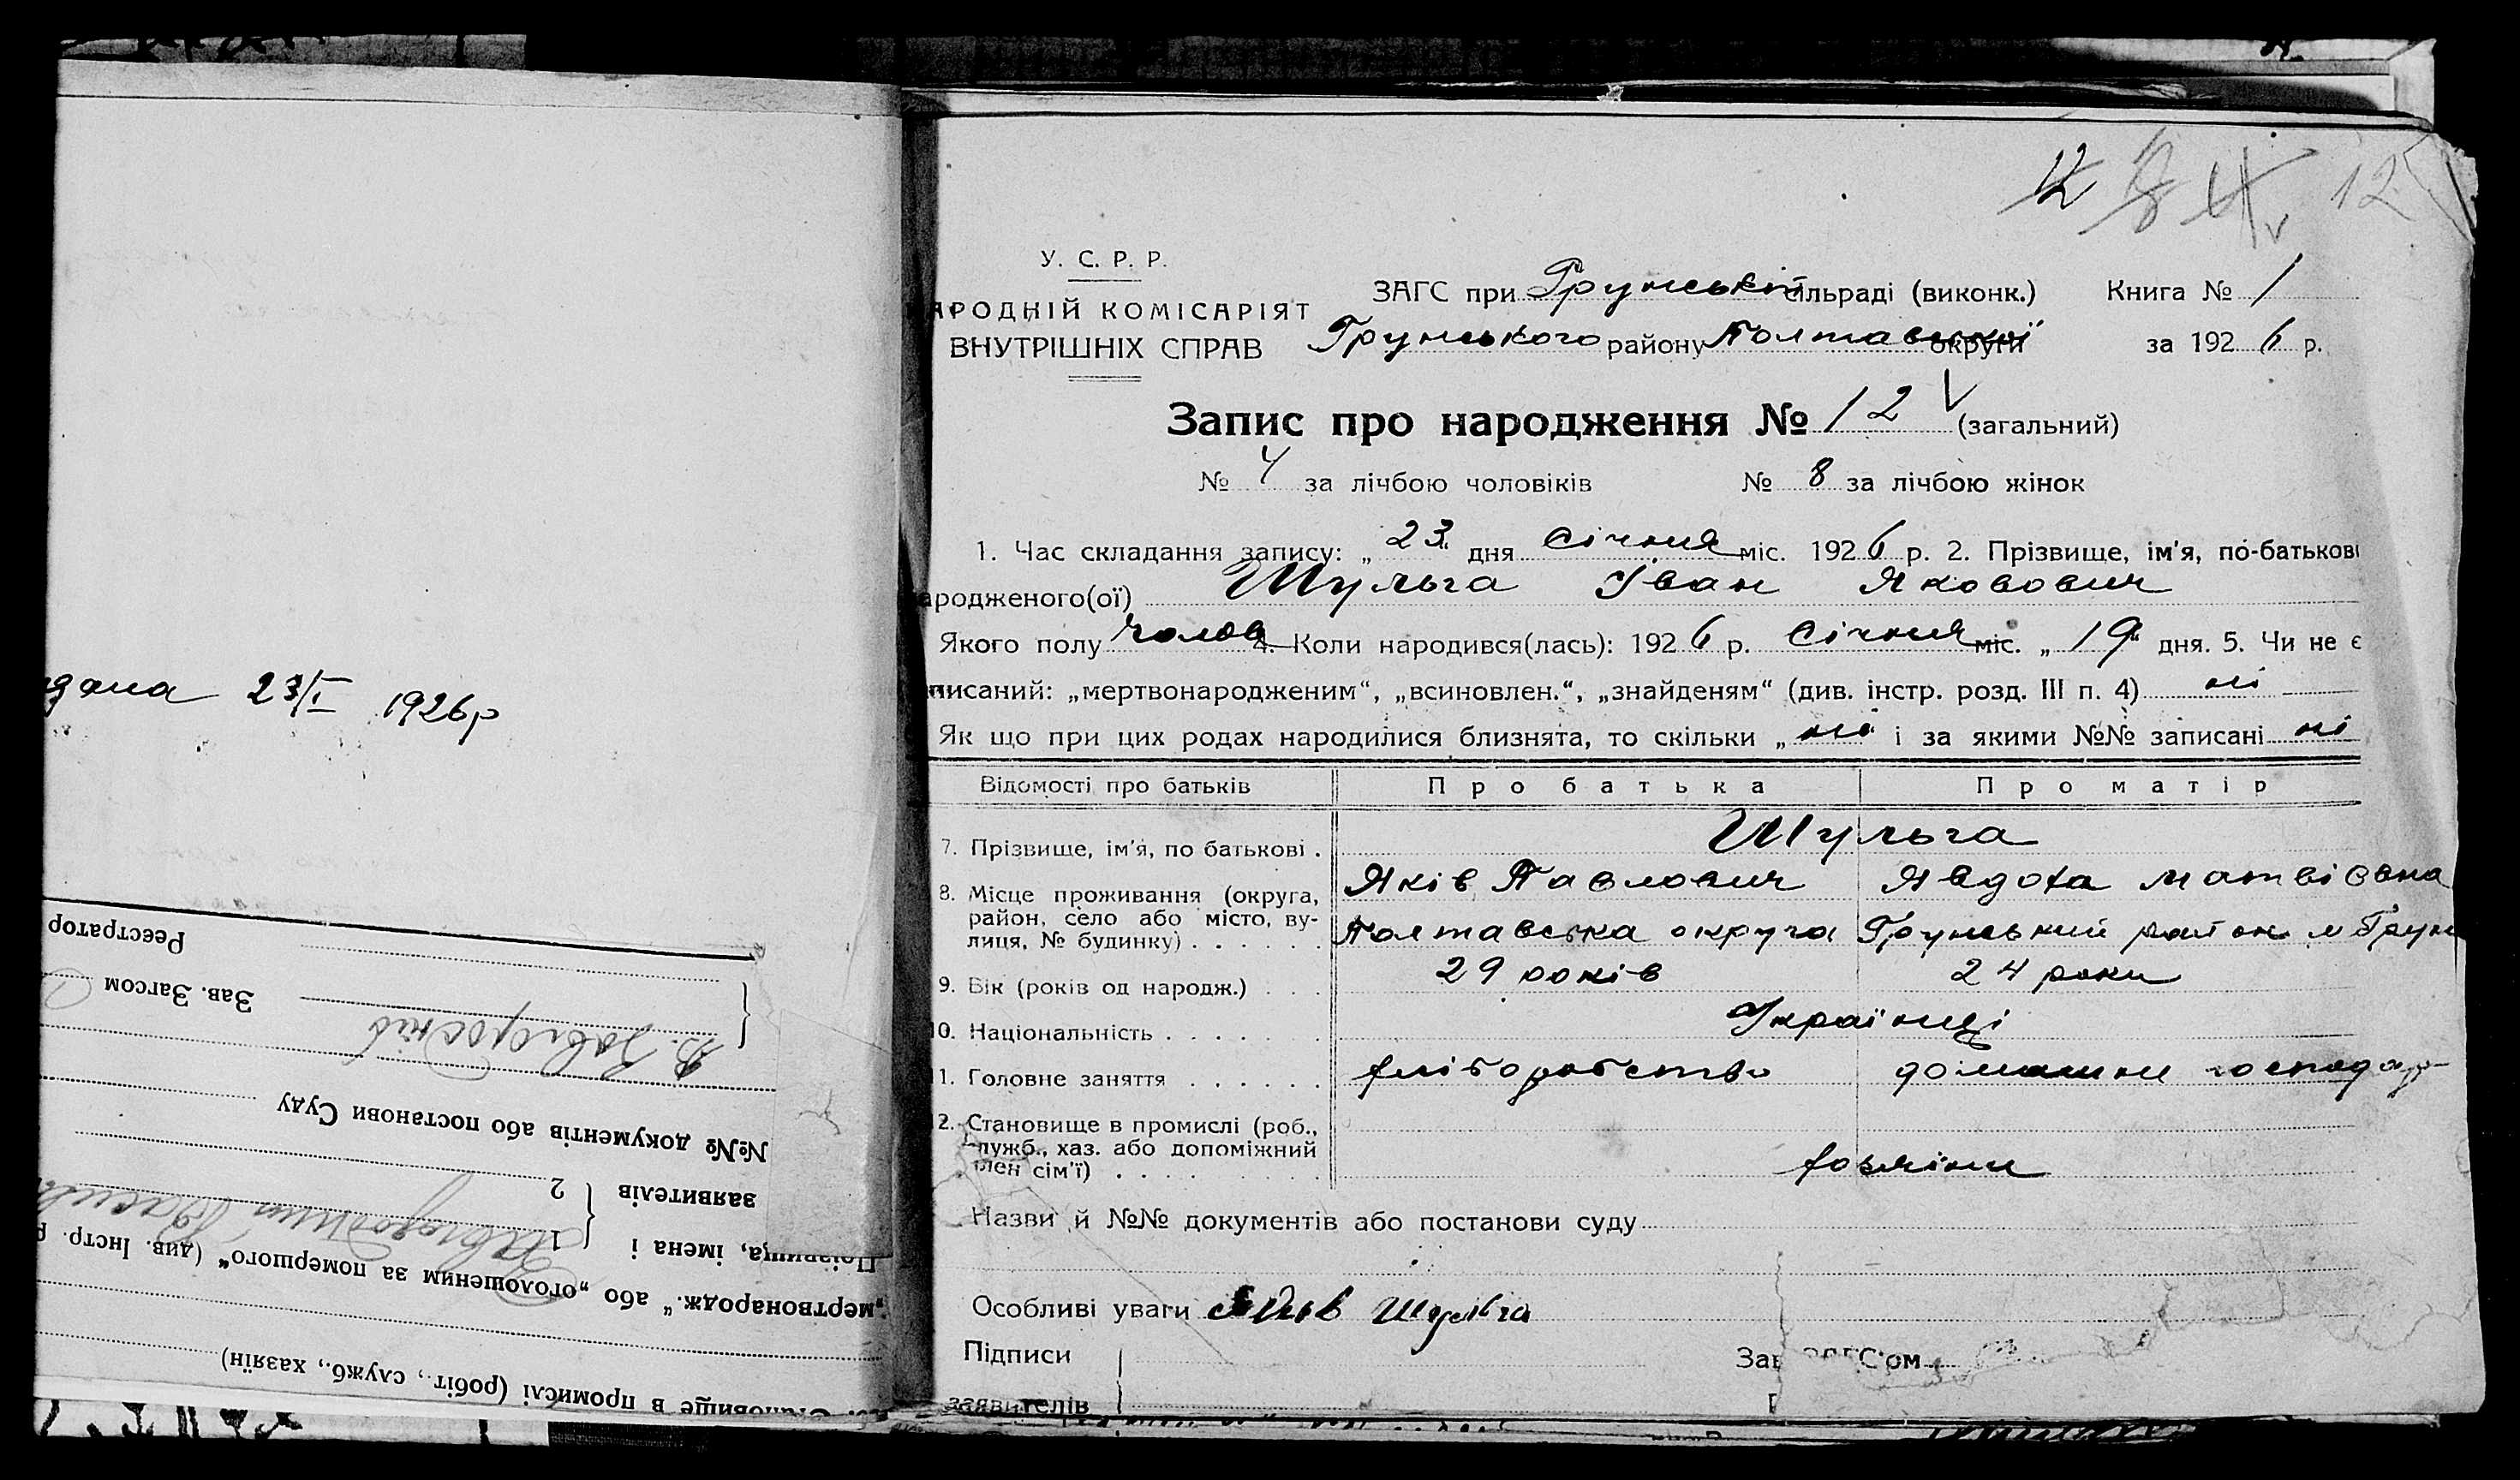 12 8 4 12
У. С. Р. Р.
АРОДНІЙ КОМІСАРІЯТ
ВНУТРІШНІХ СПРАВ
ЗАГС при Грунській сільраді (виконк.) Книга № 1
Грунського району Полтавської округи за 1926 р.
Запис про народження № 12 (загальний)
№ 4 за лічбою чоловіків № 8 за лічбою жінок
1. Час складання запису: „23“ дня січня міс. 1926 р. 2. Прізвище, ім'я, по-батькові
ародженого(ої) Шульга Іван Якович
Якого полу чолов 4. Коли народився(лась): 1926 р. Січня міс. „19“ дня. 5. Чи не є
писаний: „мертвонародженим“, „всиновлен.“, „знайденям“ (див. інстр. розд. III п. 4) ні
Як що при цих родах народилися близнята, то скільки „ні“ і за якими №№ записані ні
Відомості про батьків Про батька Про матір
7. Прізвище, ім'я, по батькові . Шульга
Яків Павлович Явдоха Матвієвна
8. Місце проживання (округа, район, село або місто, вулиця, № будинку) . . . . . . Полтавська округа Грунський район м Грунь
9. Вік (років од народж.) . . . 29 років 24 роки
10. Національність . . . . . . . Українці
11. Головне заняття . . . . . . хліборобство домашнє господар
2. Становище в промислі (роб.,
служб., хаз. або допоміжний
член сім'ї) . . . . . . . хазяїни
Назви й №№ документів або постанови суду
Особливі уваги Яків Шульга
Підписи
заявителів
Зав ЗАГС'ом
дана 23/I 1926р
Реєстратор
Зав. Загсом
В. Завгородній
№№ документів або постанови Суду
заявителів 2
Прізвища, імена і 1 Завгородний
„мертвонародж.“ або „оголошеним за помершого“ (див. Інстр. р
Становище в промислі (робіт., служб., хазяїн)